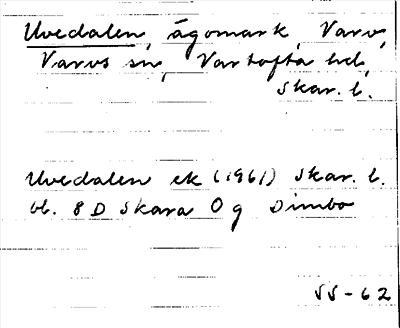 Uvedalen, ägomark, Varv,
Varvs sn, Vartofta hd,
Skar. l.
Uvedalen ek (1961) Skar. l.
bl. 8 D Skara 0 g Dimbo
VS-62